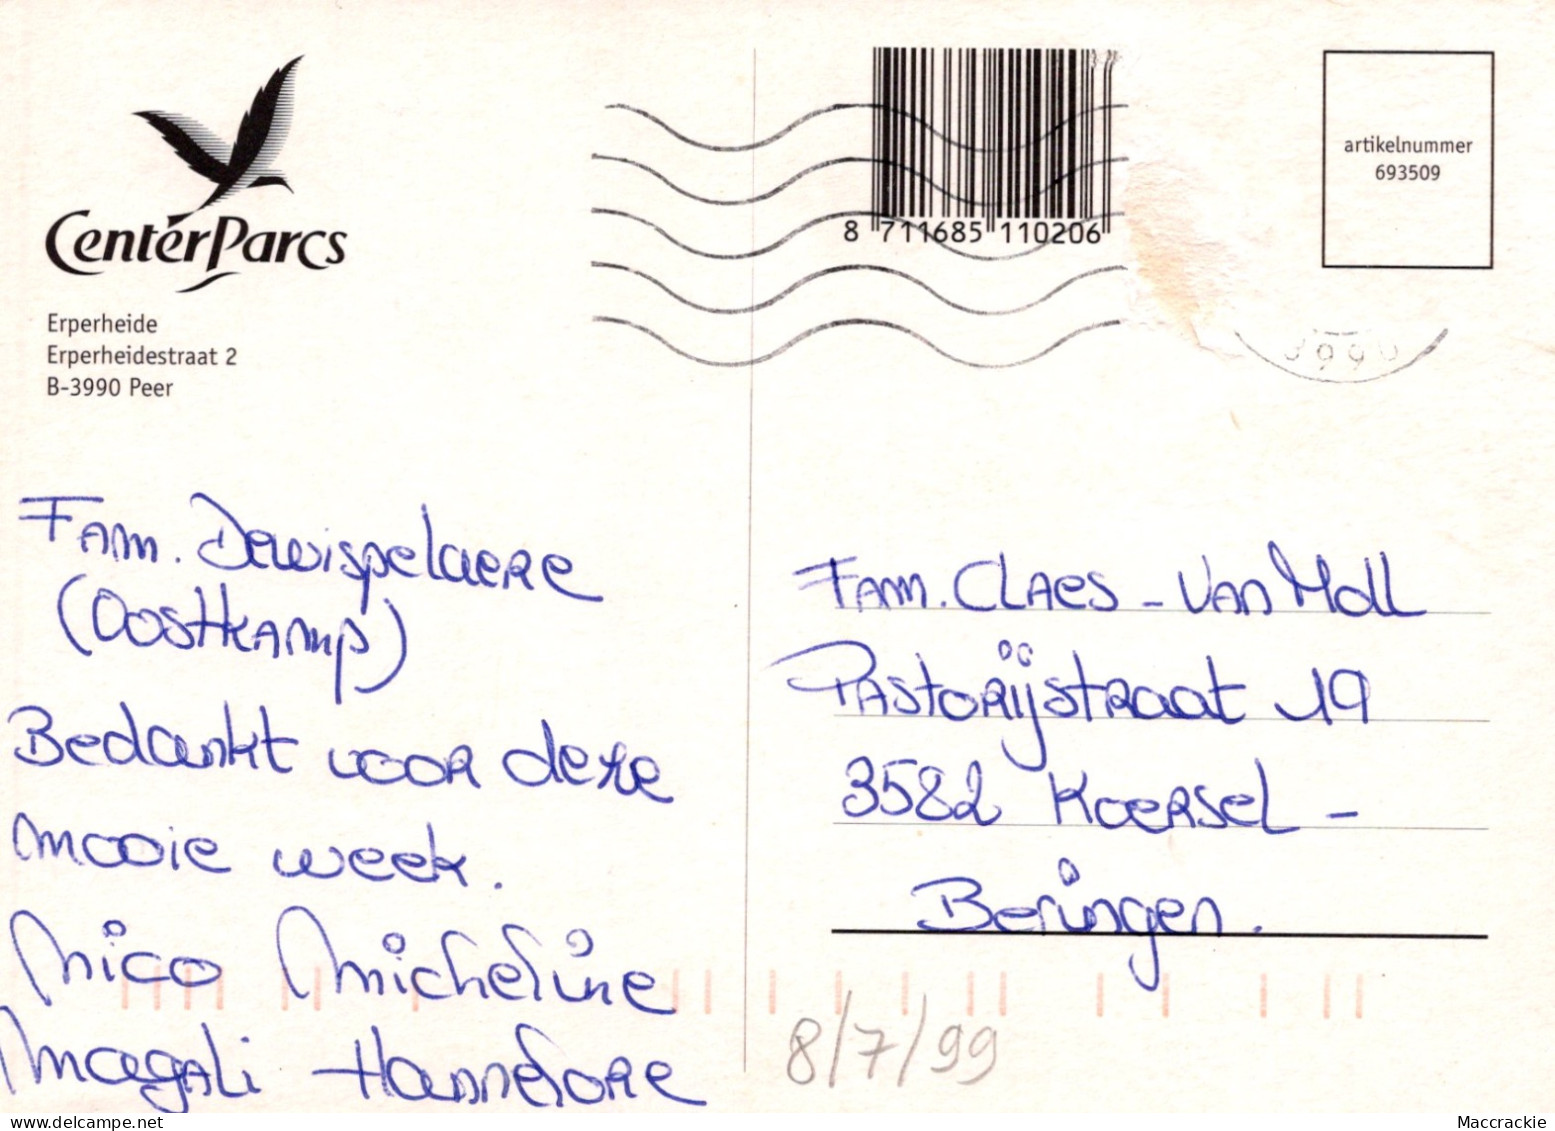 CenterParcs
Erperheide
Erperheidestraat 2
B-3990 Peer
8 711685 110206
artikelnummer
693509
3990
Fam. Dewispelaere
(Oostkamp)
Bedankt voor deze
mooie week.
Nico Micheline
Magali Hannelore
Fam. Claes - Van Moll
Pastorijstraat 19
3582 Koersel -
Beringen.
8/7/99
Maccrackie